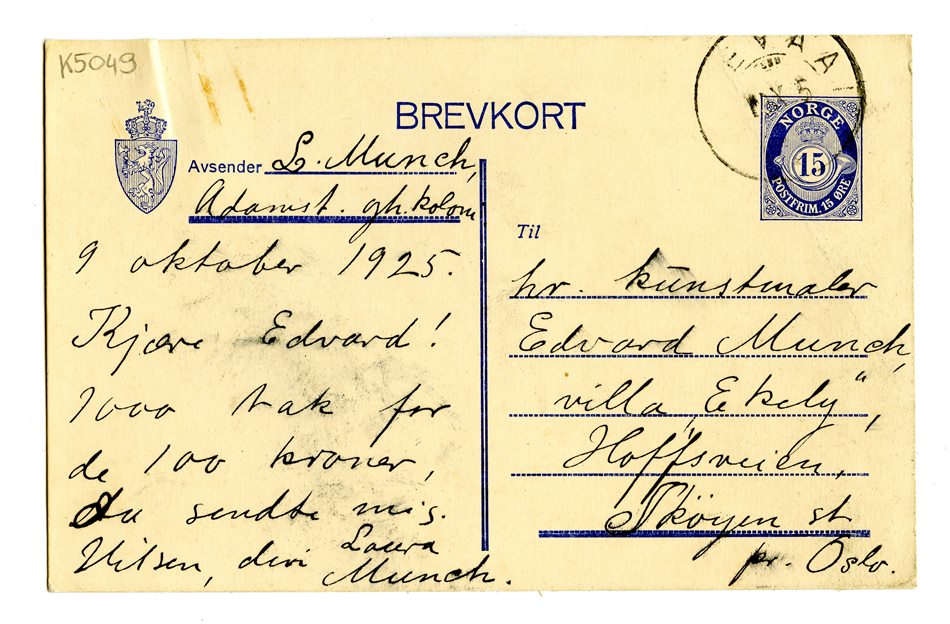 K5049
BREVKORT
Avsender L. Munch,
Adamst. gh. kolom
9 oktober 1925.
Kjære Edvard!
1000 tak for
de 100 kroner,
du sendte mig.
Hilsen, din Laura
Munch.
NORGE
15
POSTFRIM. 15 ØRE
Til
hr. kunstmaler
Edvard Munch,
villa „Ekely",
Hoffsveien,
Skøyen st
pr. Oslo.